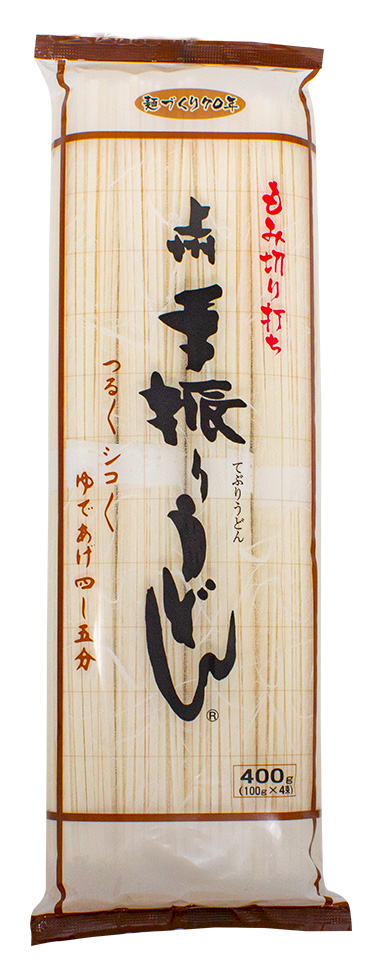 麺づくり70年
もみ切り打ち
上州
手振りうどん
てぶりうどん
®
つる〱シコ〱
ゆであげ四〜五分
400g
(100g×4束)